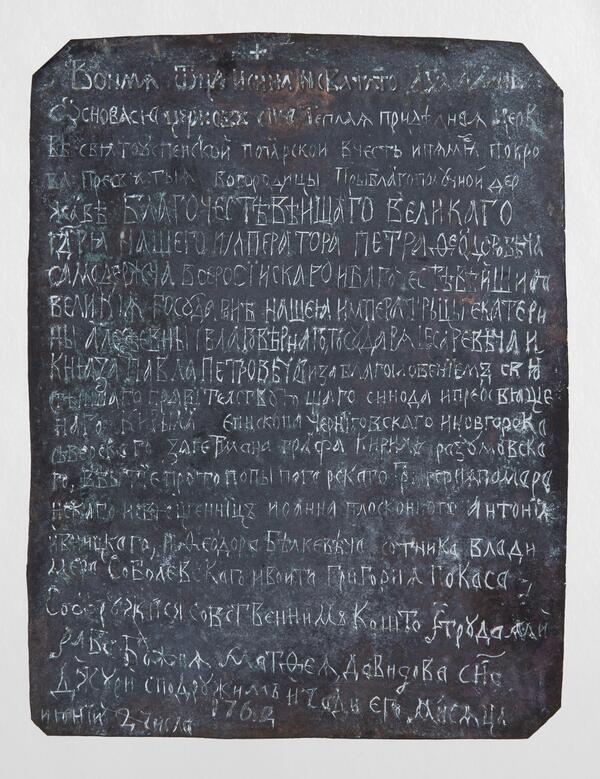 +
Во имя Отца и сина и Святаго Духа аминь
Основася церковъ сия теплая придѣлная церк
вѣ святоуспенской погарской в честь и память покро
ва пресвятыя богородицы при благополучной дер
жавѣ благочестѣвѣйшаго великаго
гдря нашего императора петра Феодоровѣча
самодержца всеросійскаго и благочестѣвѣйшия
великія государинѣ нашея императрыцы екатери
ны алеѯеевны и благовѣрнаго государя цесаревѣча и
князя павла петровѣча и за благословениемъ святѣ
йшаго правителствующаго синода и преосвяще
ннаго Кирила епископа Чернѣговскаго и новгородка
сѣверскаго за гетмана графа Кирила разумовска
го, в бытие протопопы погарскаго Григория помара
нскаго и священнѣцъ иоанна плосконного Антония
Ѳеодора Бѣлкевѣча сотника влади
мера Соболевскаго и воита Григория Гокаса
Сооружися собственнимъ коштом и трудами
рабѣ Божия матѳея давидова сна
Джури сподружиемъ и чади его мѣсяца
июнѣй 2 числа 176.2